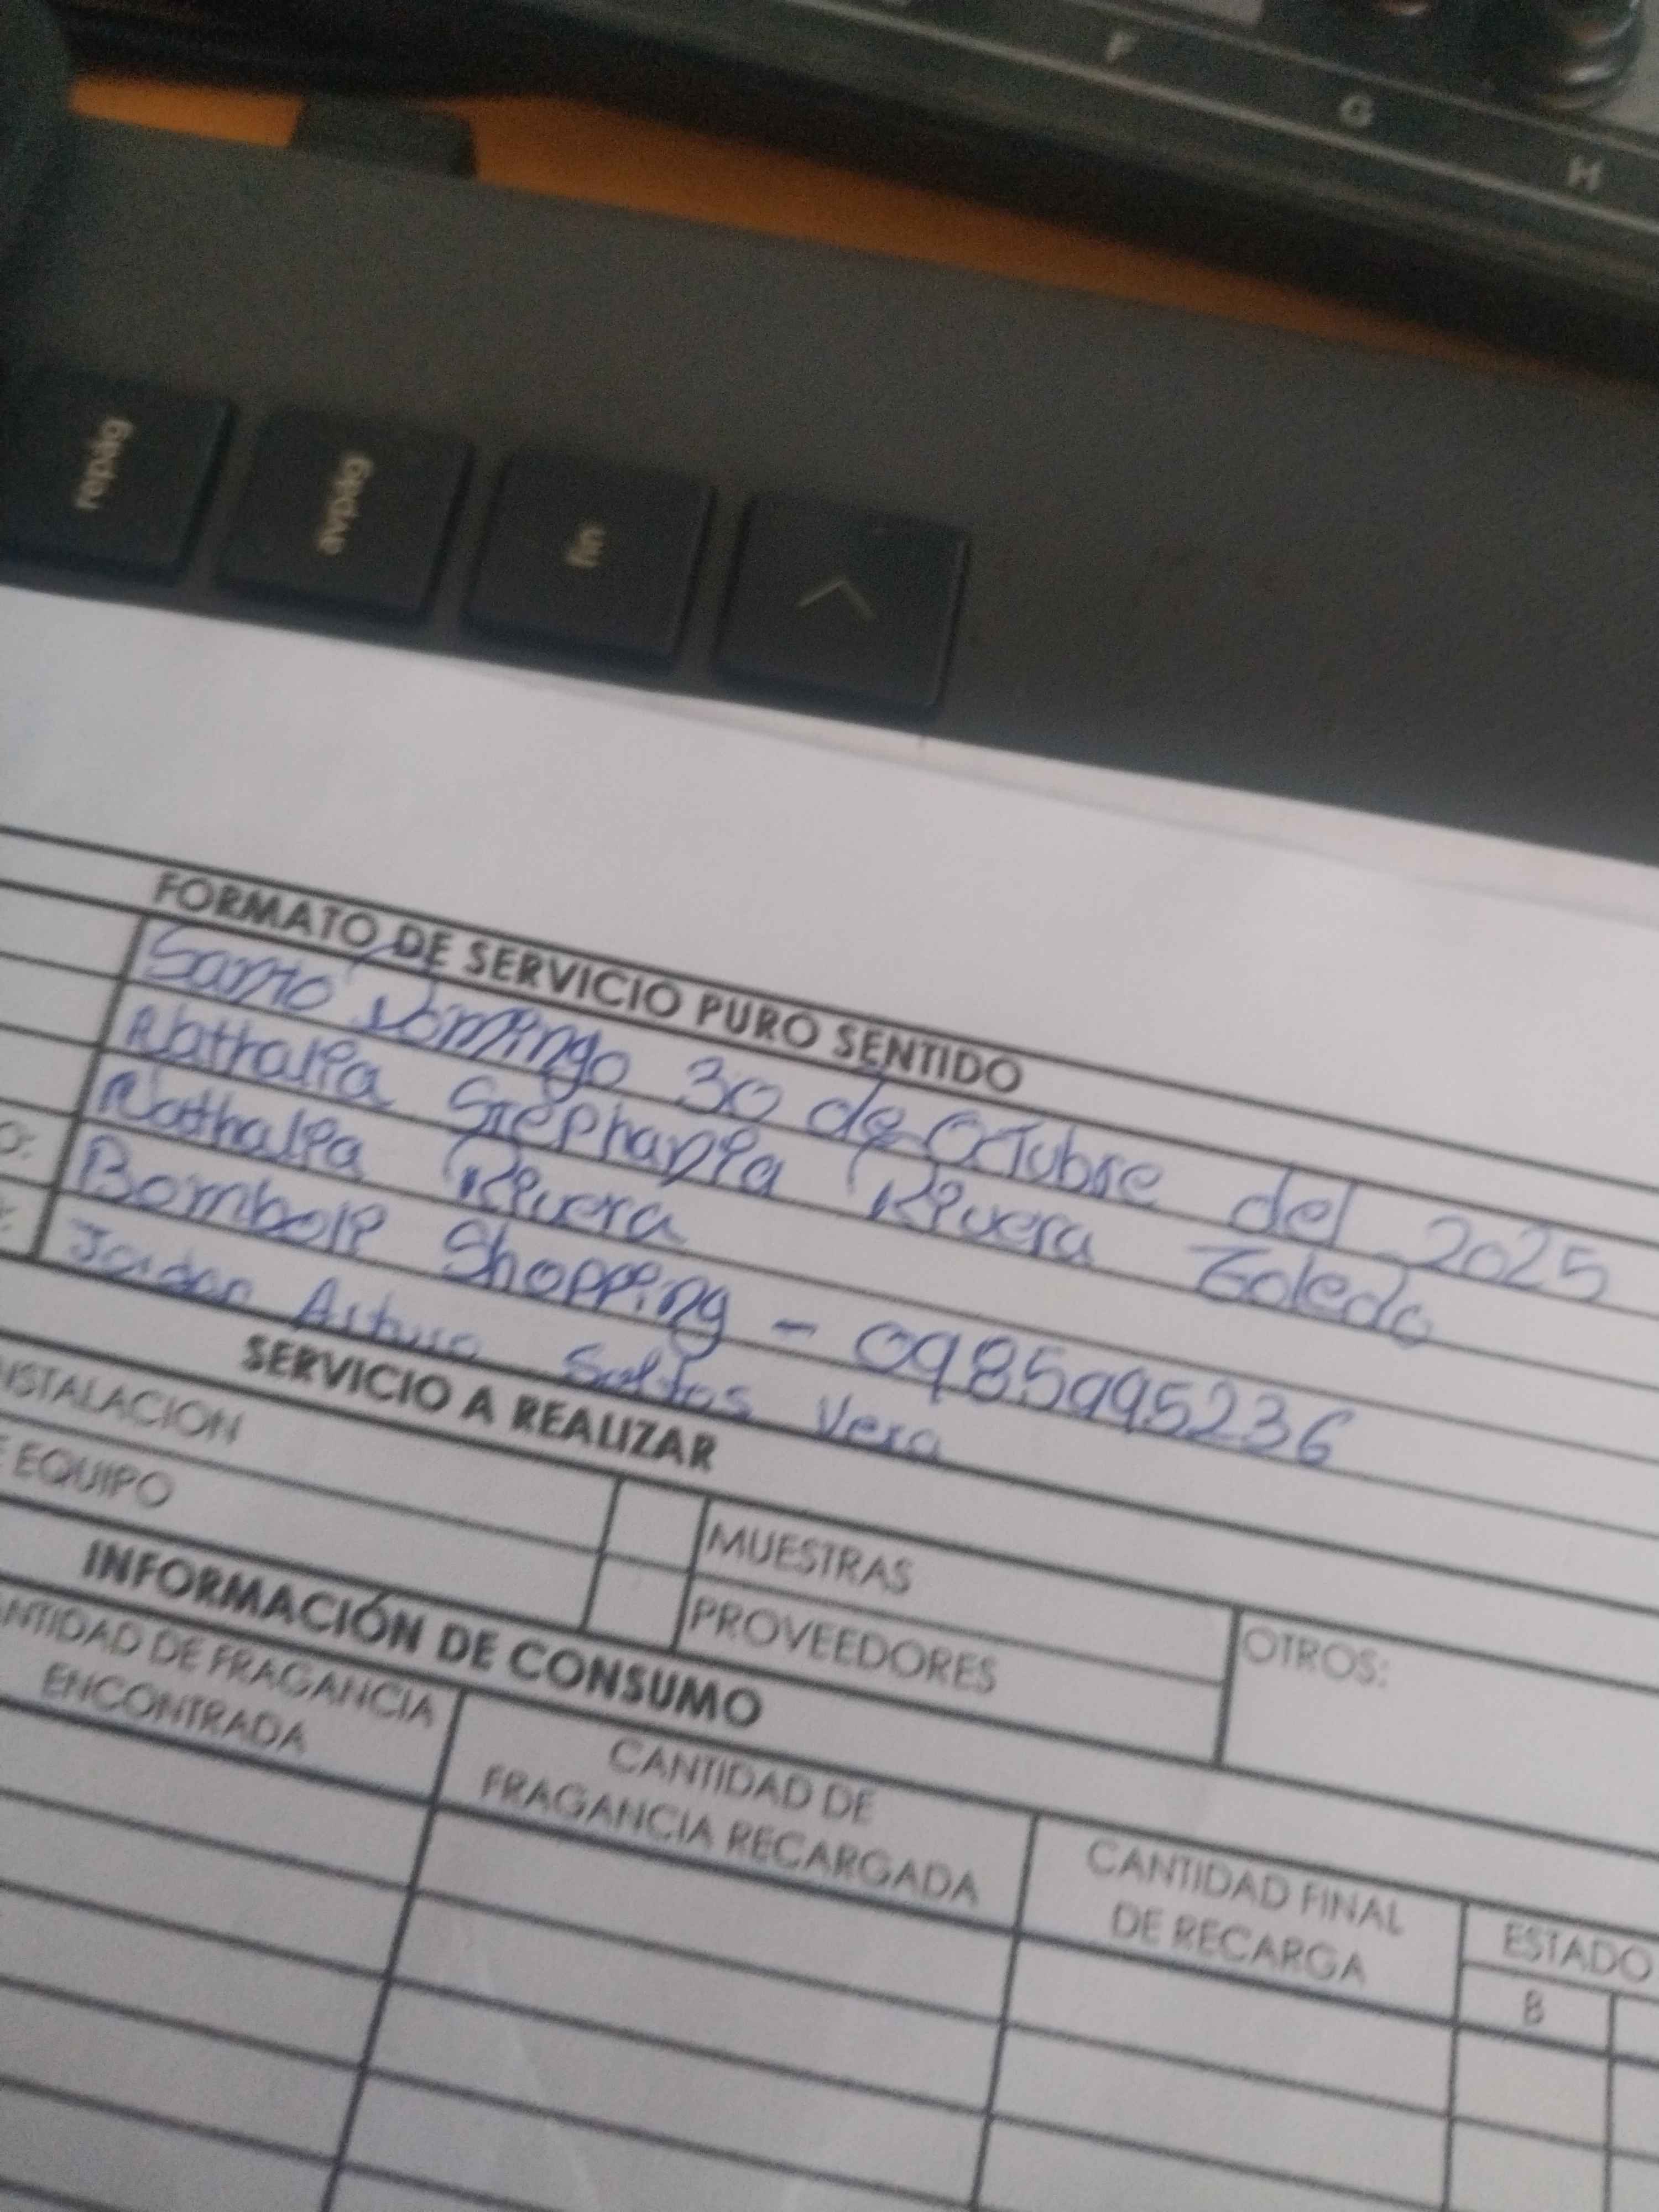 F G H
repág
avpág
fin
FORMATO DE SERVICIO PURO SENTIDO
Santo Domingo 30 de Octubre del 2025
Nathalia Stephania Rivera Toledo
Nathalia Rivera
O:
Bomboli Shopping - 0985995236
Jordan Arturo Saltos Vera
SERVICIO A REALIZAR
NSTALACION
MUESTRAS
OTROS:
E EQUIPO
PROVEEDORES
INFORMACIÓN DE CONSUMO
ANTIDAD DE FRAGANCIA
ENCONTRADA
CANTIDAD DE
FRAGANCIA RECARGADA
CANTIDAD FINAL
DE RECARGA
ESTADO
B